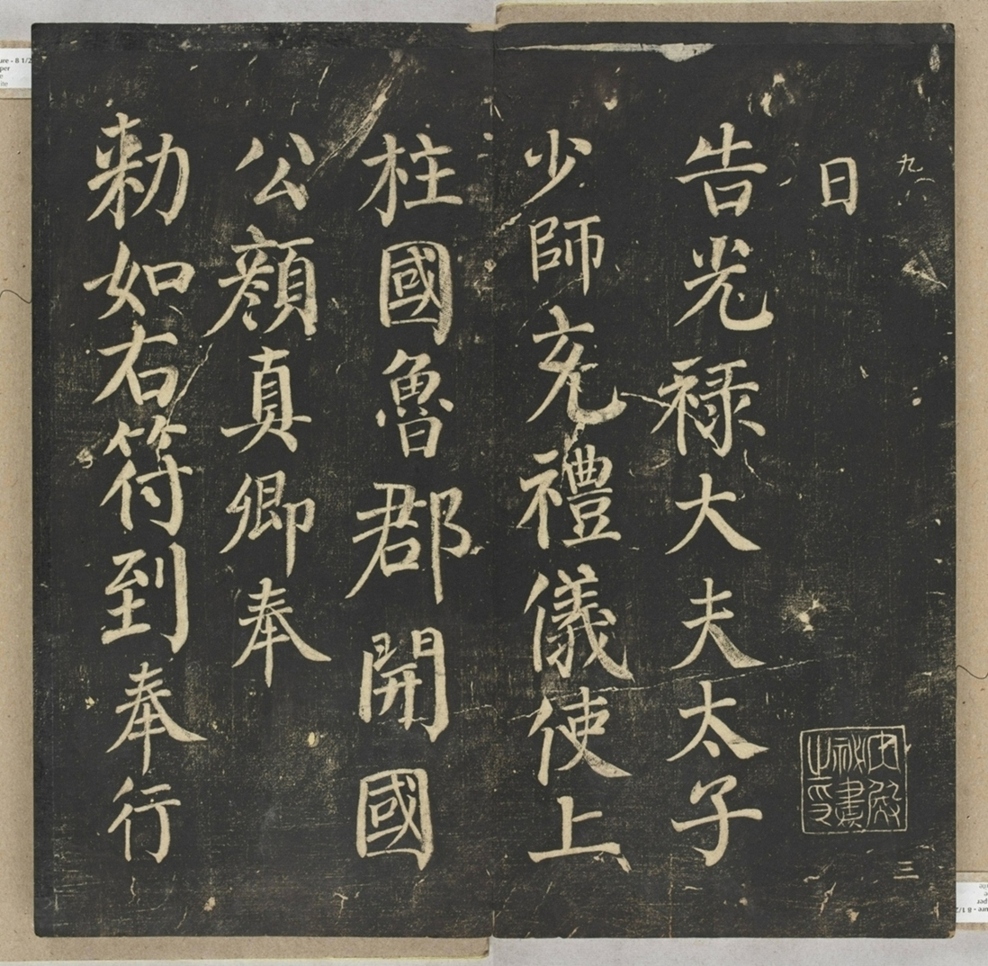 九
三
日
內殿秘書之印
告光祿大夫太子
少師充禮儀使上
柱國魯郡開國
公顏真卿奉
勅如右符到奉行